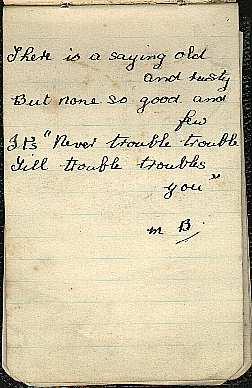 There is a saying old
and rusty
But none so good and
few
It's "Never trouble trouble
Till trouble troubles
you"
M B